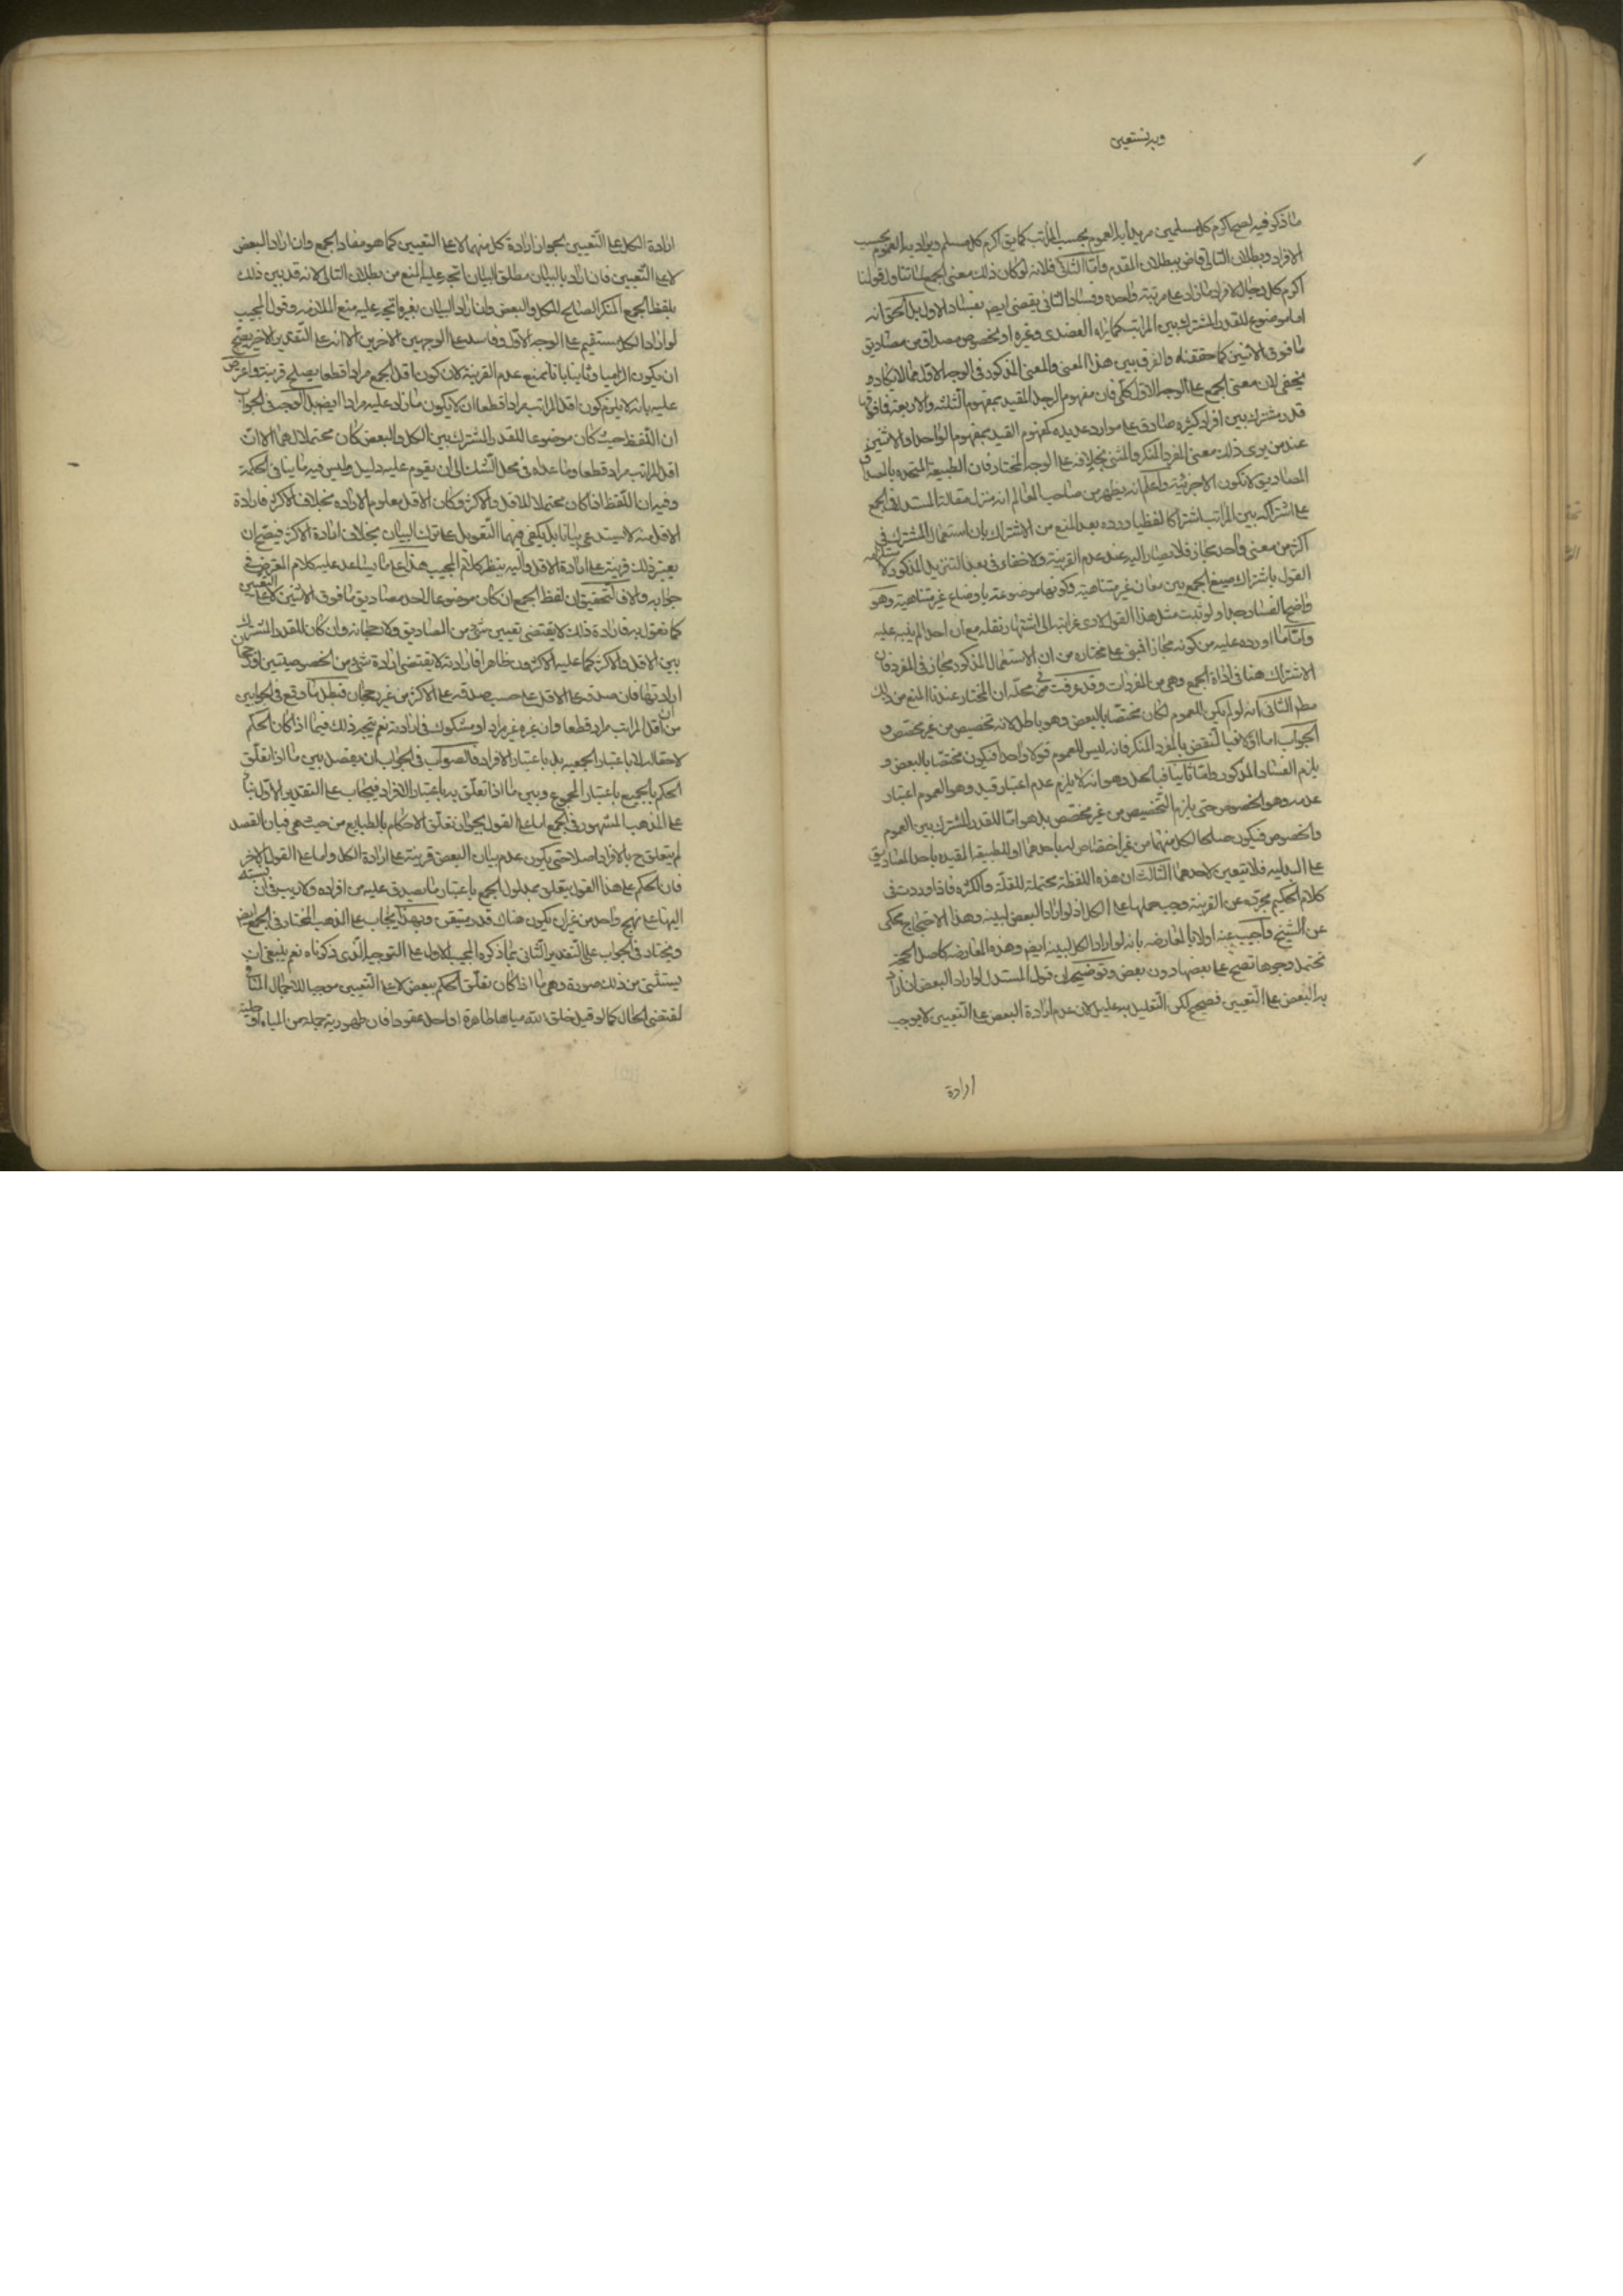 وبه نستعين
ما ذكر فيه لصح اكرم كل مسلمين مريدا به العموم بحسب المراتب كما يق اكرم كل مسلم ويراد به العموم بحسب
الافراد وبطلان التالى قاض ببطلان المقدم واما الثانى فلانه لو كان ذلك معنى الجمع لما تناول قولنا
اكرم كل رجال لافراد ما زاد على مرتبة واحدة وفساد الثانى يقضى ايضا بفساد الاول بل الحق انه
اما موضوع للقدر المشترك بين المراتب كما يراه العضدى وغيره او لخصوص مصداق من مصاديق
ما فوق الاثنين كما حققناه والفرق بين هذا المعنى والمعنى المذكور فى الوجه الاول مما لا يكاد و
يخفى لان معنى الجمع على الوجه الاول كلى فان مفهوم الرجل المقيد بمفهوم الثلثة والاربعة فما فوقها
قدر مشترك بين افراد كثيرة صادق على موارد عديدة كمفهوم المقيد بمفهوم الواحد او الاثنين
عند من يرى ذلك معنى المفرد المنكر والمثنى بخلافه على الوجه المختار فان الطبيعة المتحدة باحد
المصاديق لا تكون الا جزئية واعلم انه يظهر من صاحب المعالم انه منزل مقالة المستدل فى الجمع
على اشتراكه بين المراتب اشتراكا لفظيا ورده بعد المنع من الاشتراك بان استعمال المشترك فى
اكثر من معنى واحد مجاز فلا يصار اليه عند عدم القرينة ولا خفاء فى بعد التنزيل المذكور لاستلزامه
القول باشتراك صيغ الجمع بين معان غير متناهية وكونها موضوعة باوضاع غير متناهية وهو
واضح الفساد جدا ولو ثبت مثل هذا القول لادى غرابته الى اشتهار نقله مع ان احدا لم ينبه عليه
واما ما اورده عليه من كونه مجازا فمبنى على مختاره من ان الاستعمال المذكور مجاز فى المفرد فان
الاشتراك هنا فى اداة الجمع وهى من المفردات وقد عرفت فى محله ان المختار عندنا المنع من ذلك
مطم الثانى انه لو لم يكن للعموم لكان مختصا بالبعض وهو باطل لانه تخصيص من غير مخصص و
الجواب اما اولا فبالنقض بالمفرد المنكر فانه ليس للعموم قولا واحدا فيكون مختصا بالبعض و
يلزم الفساد المذكور واما ثانيا فبالحل وهو انه لا يلزم عدم اعتبار قيد وهو العموم اعتبار
عدمه وهو الخصوص حتى يلزم التخصيص من غير مخصص بل هو اما للقدر المشترك بين العموم
والخصوص فيكون صالحا لكل منهما من غير اختصاص له باحدهما او للطبيعة المقيدة باحد المصاديق
على البدلية فلا تتعين لاحدهما الثالث ان هذه اللفظة محتملة للقلة والكثرة فاذا وردت فى
كلام الحكيم مجردة عن القرينة وجب حملها على الكل اذ لو اراد البعض لبينه وهذا الاحتجاج محكى
عن الشيخ واجيب عنه اولا بالمعارضة بانه لو اراد الكل لبينه ايضا وهذه المعارضة كاصل الحجة
تحتمل وجوها تصح على بعضها دون بعض وتوضيحه ان قول المستدل لو اراد البعض ان اراد
به البعض على التعيين فصحيح لكن التعليل به عليل لان عدم ارادة البعض على التعيين لا يوجب
ارادة
ارادة الكل على التعيين لجواز ارادة كل منهما لا على التعيين كما هو مفاد الجمع وان اراد البعض
لا على التعيين فان اراد بالبيان مطلق البيان اتجه عليه المنع من بطلان التالى لانه قد بين ذلك
بلفظ الجمع المنكر الصالح للكل والبعض وان اراد البيان بغيره اتجه عليه منع الملازمة وقول المجيب
لو اراد الكل مستقيم على الوجه الاول وفاسد على الوجهين الاخرين الا انه على التقدير الاخير يصح
ان يكون الزاميا وثانيا بانا نمنع عدم القرينة لان كون اقل الجمع مرادا قطعا يصلح قرينة واعترض
عليه بانه لا يلزم كون اقل المراتب مرادا قطعا ان لا يكون ما زاد عليه مرادا ايضا بل الوجه فى الجواب
ان اللفظ حيث كان موضوعا للقدر المشترك بين الكل والبعض كان محتملا لهما الا ان
اقل المراتب مراد قطعا وما عداه فى محل الشك الى ان يقوم عليه دليل وليس فيه ما ينافى الحكمة
وفيه ان اللفظ اذا كان محتملا للاقل والاكثر وكان الاقل معلوم الارادة بخلاف الاكثر فارادة
الاقل منه لا يستدعى بيانا بل يكفى فيها التعويل على ترك البيان بخلاف ارادة الاكثر فيصح ان
يعتبر ذلك قرينة على ارادة الاقل واليه ينظر كلام المجيب هذا على ما يساعد عليه كلام المعترض فى
جوابه والا فالتحقيق ان لفظ الجمع ان كان موضوعا لاحد مصاديق ما فوق الاثنين لا على التعيين
كما نقول به فارادة ذلك لا يقتضى تعيين شئ من المصاديق ولا رجحانه وان كان للقدر المشترك
بين الاقل والاكثر كما عليه الاكثرون ظاهرا فارادته لا يقتضى ارادة شئ من الخصوصيتين او رجحان
ارادتها فان صدقه على الاقل على حسب صدقه على الاكثر من غير رجحان فبطل ما وقع فى الجوابين
من ان اقل المراتب مراد قطعا وان غيره غير مراد او مشكوك فى ارادته نعم يتجه ذلك فيما اذا كان الحكم
لاحقا له لا باعتبار الجمعية بل باعتبار الافراد فالصواب فى الجواب ان يفصل بين ما اذا تعلق
الحكم بالجميع باعتبار المجموع وبين ما اذا تعلق به باعتبار الافراد فيجاب على التقدير الاول بناء
على المذهب المشهور فى الجمع اما على القول بجواز تعلق الاحكام بالطبايع من حيث هى فبان القصد
لم يتعلق ح بالافراد اصلا حتى يكون عدم بيان البعض قرينة على ارادة الكل واما على القول الاخر
فان الحكم على هذا القول يتعلق بمدلول الجمع باعتبار ما يصدق عليه من افراده ولا ريب فى ان نسبته
اليها على نهج واحد من غير ان يكون هناك قدر متيقن وبهذا يجاب على المذهب المختار فى الجمع ايضا
ويختار فى الجواب على التقدير الثانى بما ذكره المجيب الاول على التوجيه الذى ذكرناه نعم ينبغى ان
يستثنى من ذلك صورة وهى ما اذا كان تعلق الحكم ببعض لا على التعيين موجبا للاجمال المنافى
لمقتضى الحال كما لو قيل خلق الله مياها طاهرة او احل عقودا فان طهورية جملة من المياه او حلية